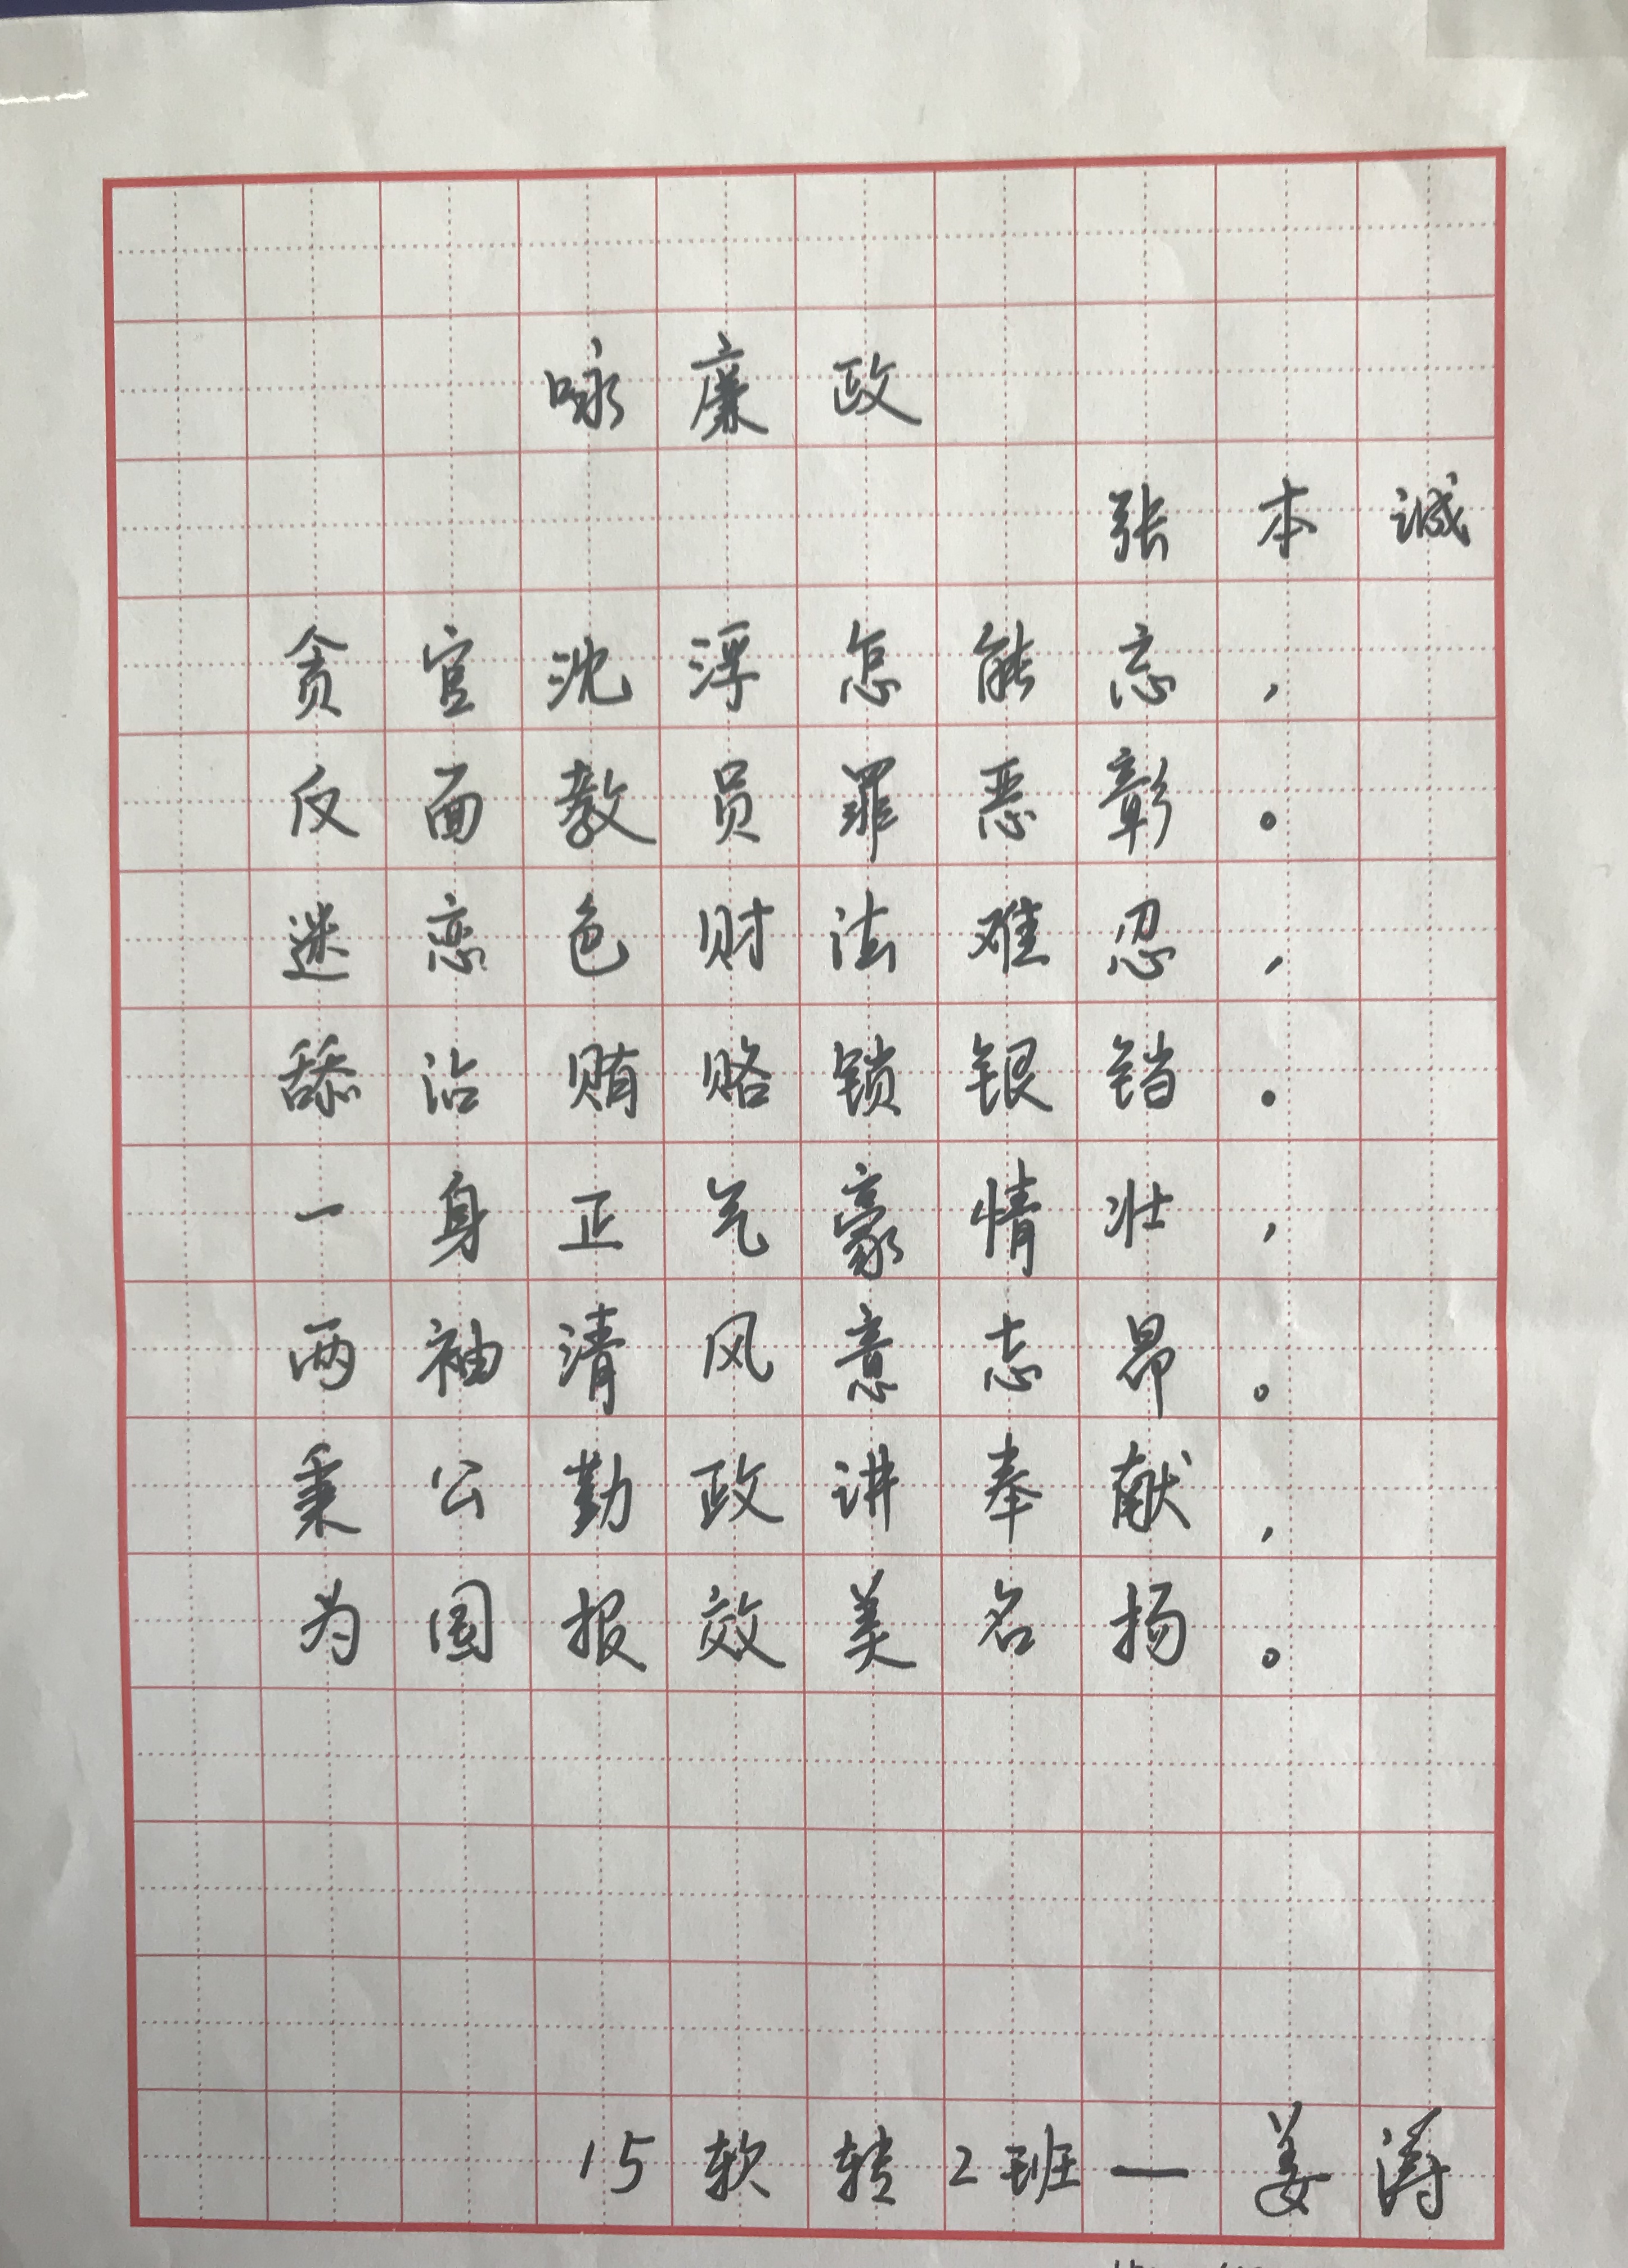 咏廉政
张本诚
贪官沈浮怎能忘，
反面教员罪恶彰。
迷恋色财法难忍，
舔沾贿赂锁银铛。
一身正气豪情壮，
两袖清风意志昂。
秉公勤政讲奉献，
为国报效美名扬。
15软转2班—姜涛